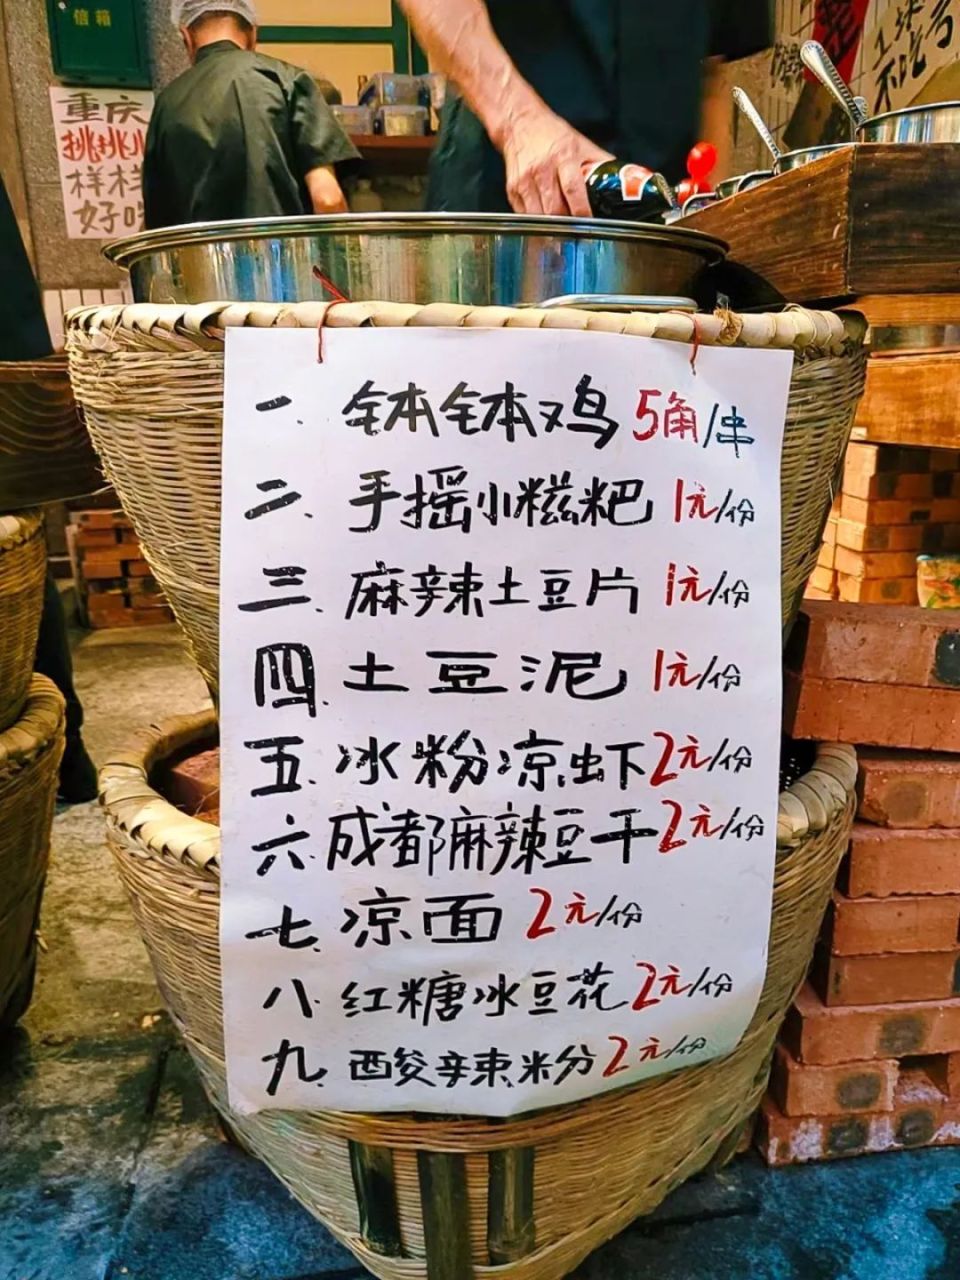 信箱
重庆
挑挑儿
样样
好吃
不吃亏
一、钵钵鸡 5角/串
二、手摇小糍粑 1元/份
三、麻辣土豆片 1元/份
四、土豆泥 1元/份
五、冰粉凉虾 2元/份
六、成都麻辣豆干 2元/份
七、凉面 2元/份
八、红糖冰豆花 2元/份
九、酸辣米分 2元/份